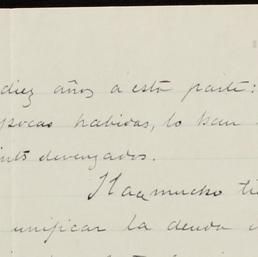 diez años a esta parte:
épocas habidas, lo han
devengados.
Hace mucho
unificar la deuda